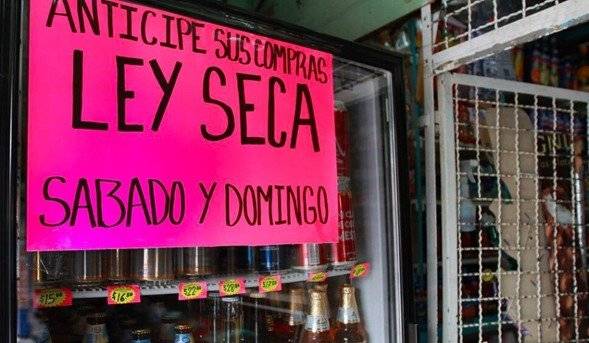 ANTICIPE SUS COMPRAS
LEY SECA
SABADO Y DOMINGO
$15.00 $16.00 $22.00 $28.00